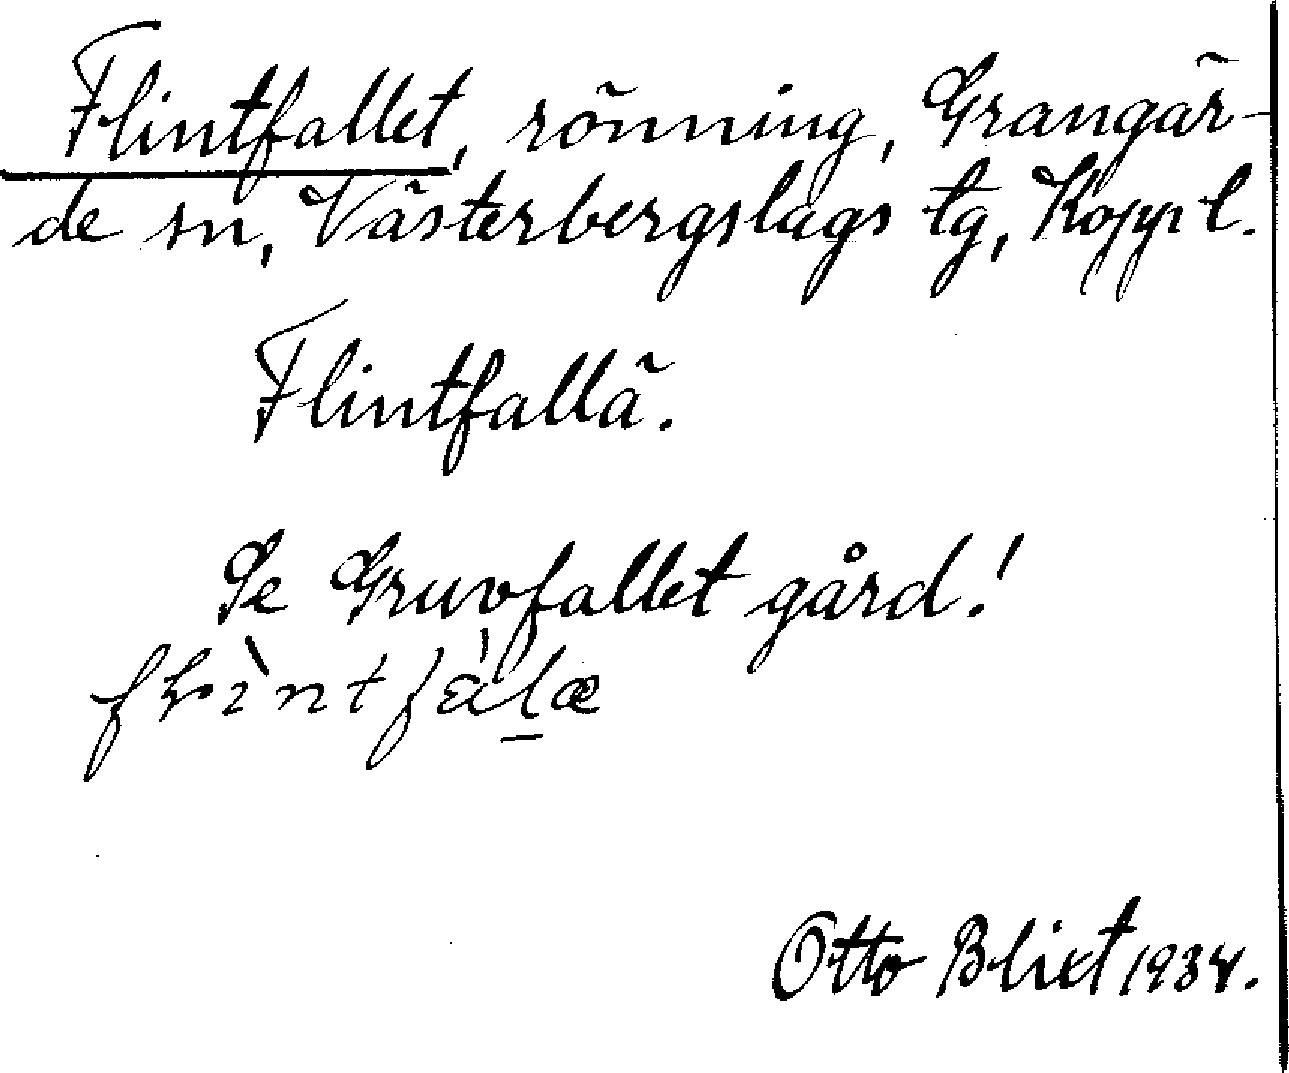 Flintfallet, röjning, Grangär-
de sn, Västerbergslags tg, Kopp l.
Flintfallä.
Se Gruvfallet gård!
Otto Blixt 1934.